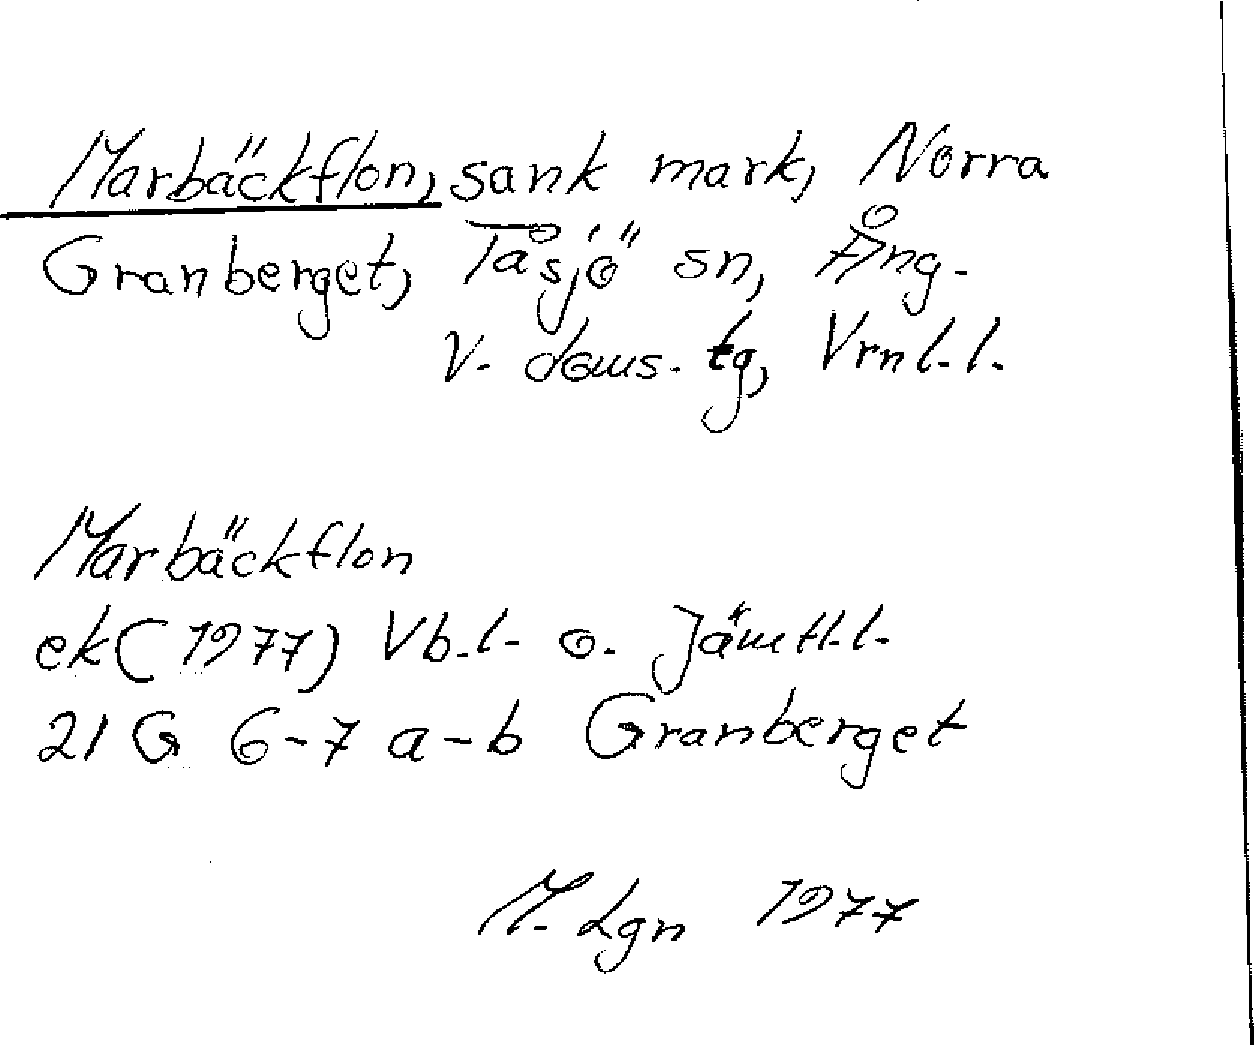 Marbäckflon, sank mark, Norra
Granberget, Tåsjö sn, Ång.
V. doms. tg, Vrnl.l.
Marbäckflon
ek (1977) Vb.l. o. Jämtl.l.
21 G 6-7 a-b Granberget
M. Lgn 1977